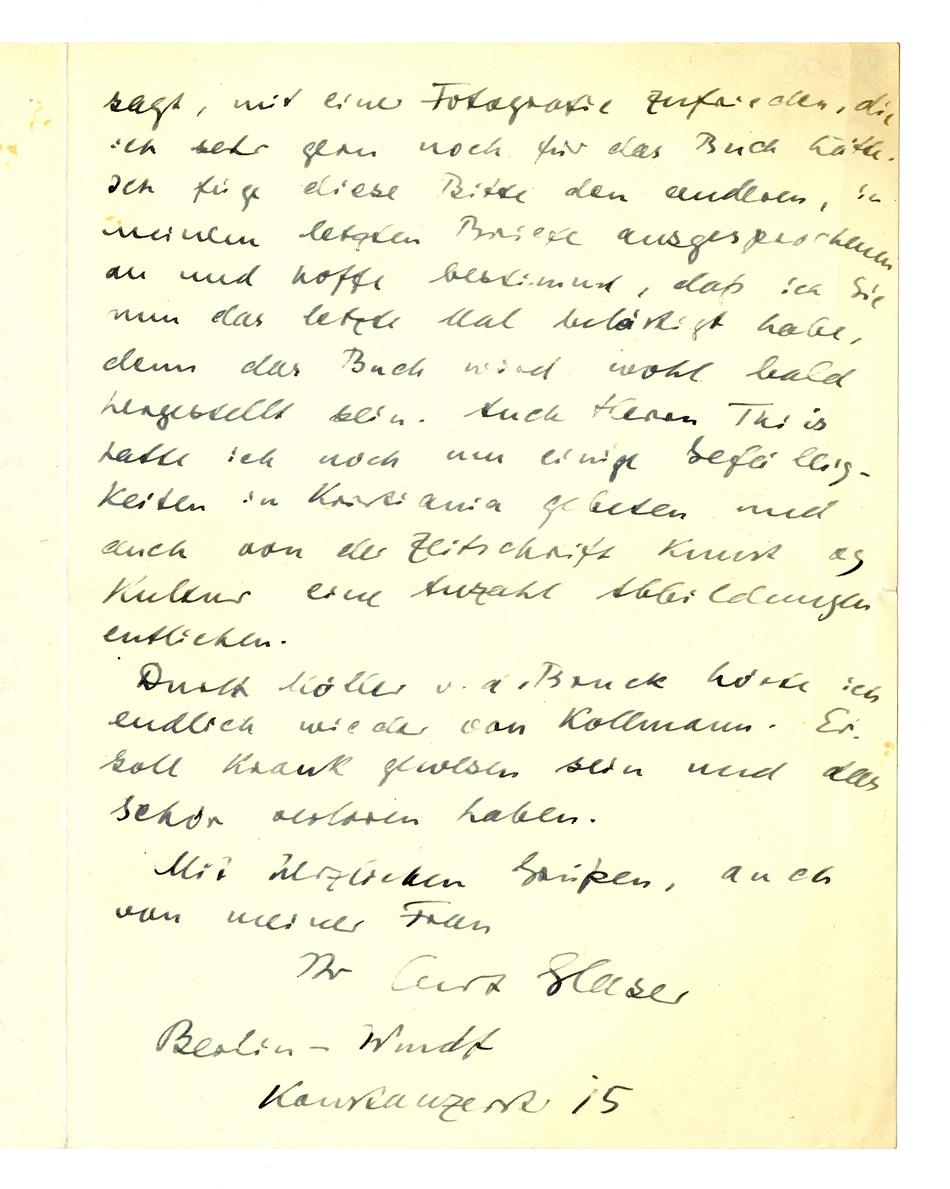 sagt, mit einer Fotografie zufrieden, die
ich sehr gern noch für das Buch hätte.
Ich füge diese Bitte den anderen, in
meinem letzten Briefe ausgesprochenen
an und hoffe bestimmt, daß ich Sie
nun das letzte Mal belästigt habe,
denn das Buch wird wohl bald
hergestellt sein. Auch Herrn Thiis
hatte ich noch um einige Gefällig-
keiten in Kristiania gebeten und
auch von der Zeitschrift Kunst og
Kultur eine Anzahl Abbildungen
entliehen.
Durch Möller v. d. Bruck hörte ich
endlich wieder von Kollmann. Er
soll krank gewesen sein und das
Gehör verloren haben.
Mit herzlichen Grüßen, auch
von meiner Frau
Ihr Curt Glaser
Berlin – Wmdf
Konstanzerstr 15